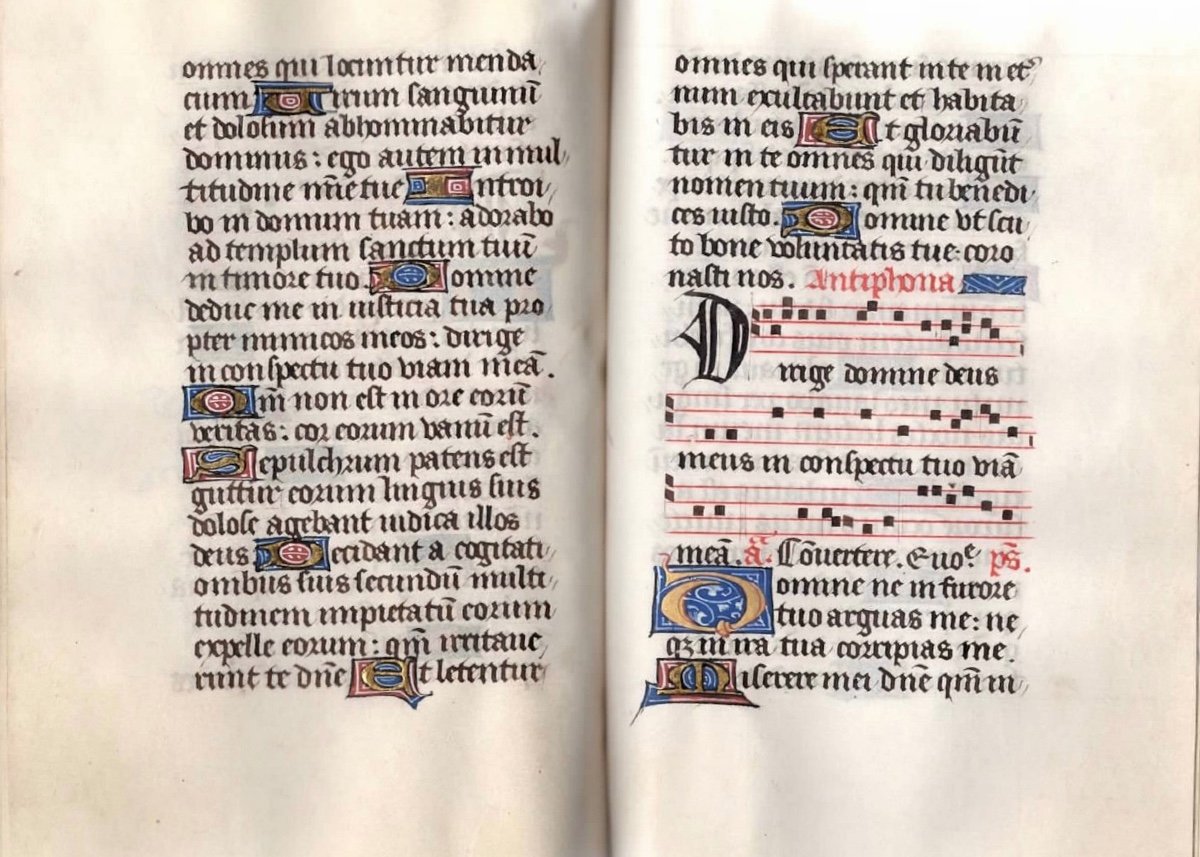 omnes qui locuntur menda
cium Virum sanguinū
et dolosum abhominabitur
dominus: ego autem in mul
titudine mīe tue Introi
bo in domum tuam: adorabo
ad templum sanctum tuū
in timore tuo. Domine
deduc me in iusticia tua pro
pter inimicos meos: dirige
in conspectu tuo viam meā.
Qm̄ non est in ore eorū
veritas: cor eorum vanū est.
Sepulchrum patens est
guttur eorum linguis suis
dolose agebant iudica illos
deus Decidant a cogitati
onibus suis secundū multi
tudinem impietatū eorum
expelle eorum: qm̄ irritaue
runt te dn̄e Et letentur
omnes qui sperant in te in et᷒
num exultabunt et habita
bis in eis Et gloriabū
tur in te omnes qui diligūt
nomen tuum: qm̄ tu benedi
ces iusto. Domine vt scu
to bone voluntatis tue: coro
nasti nos. Antiphona
Dirige domine deus
meus in conspectu tuo viā
meā. a̅. Cōuertere. Euoᵉ ps̄.
Domine ne in furore
tuo arguas me: ne
qꝫ in ira tua corripias me.
Miserere mei dn̄e qm̄ in